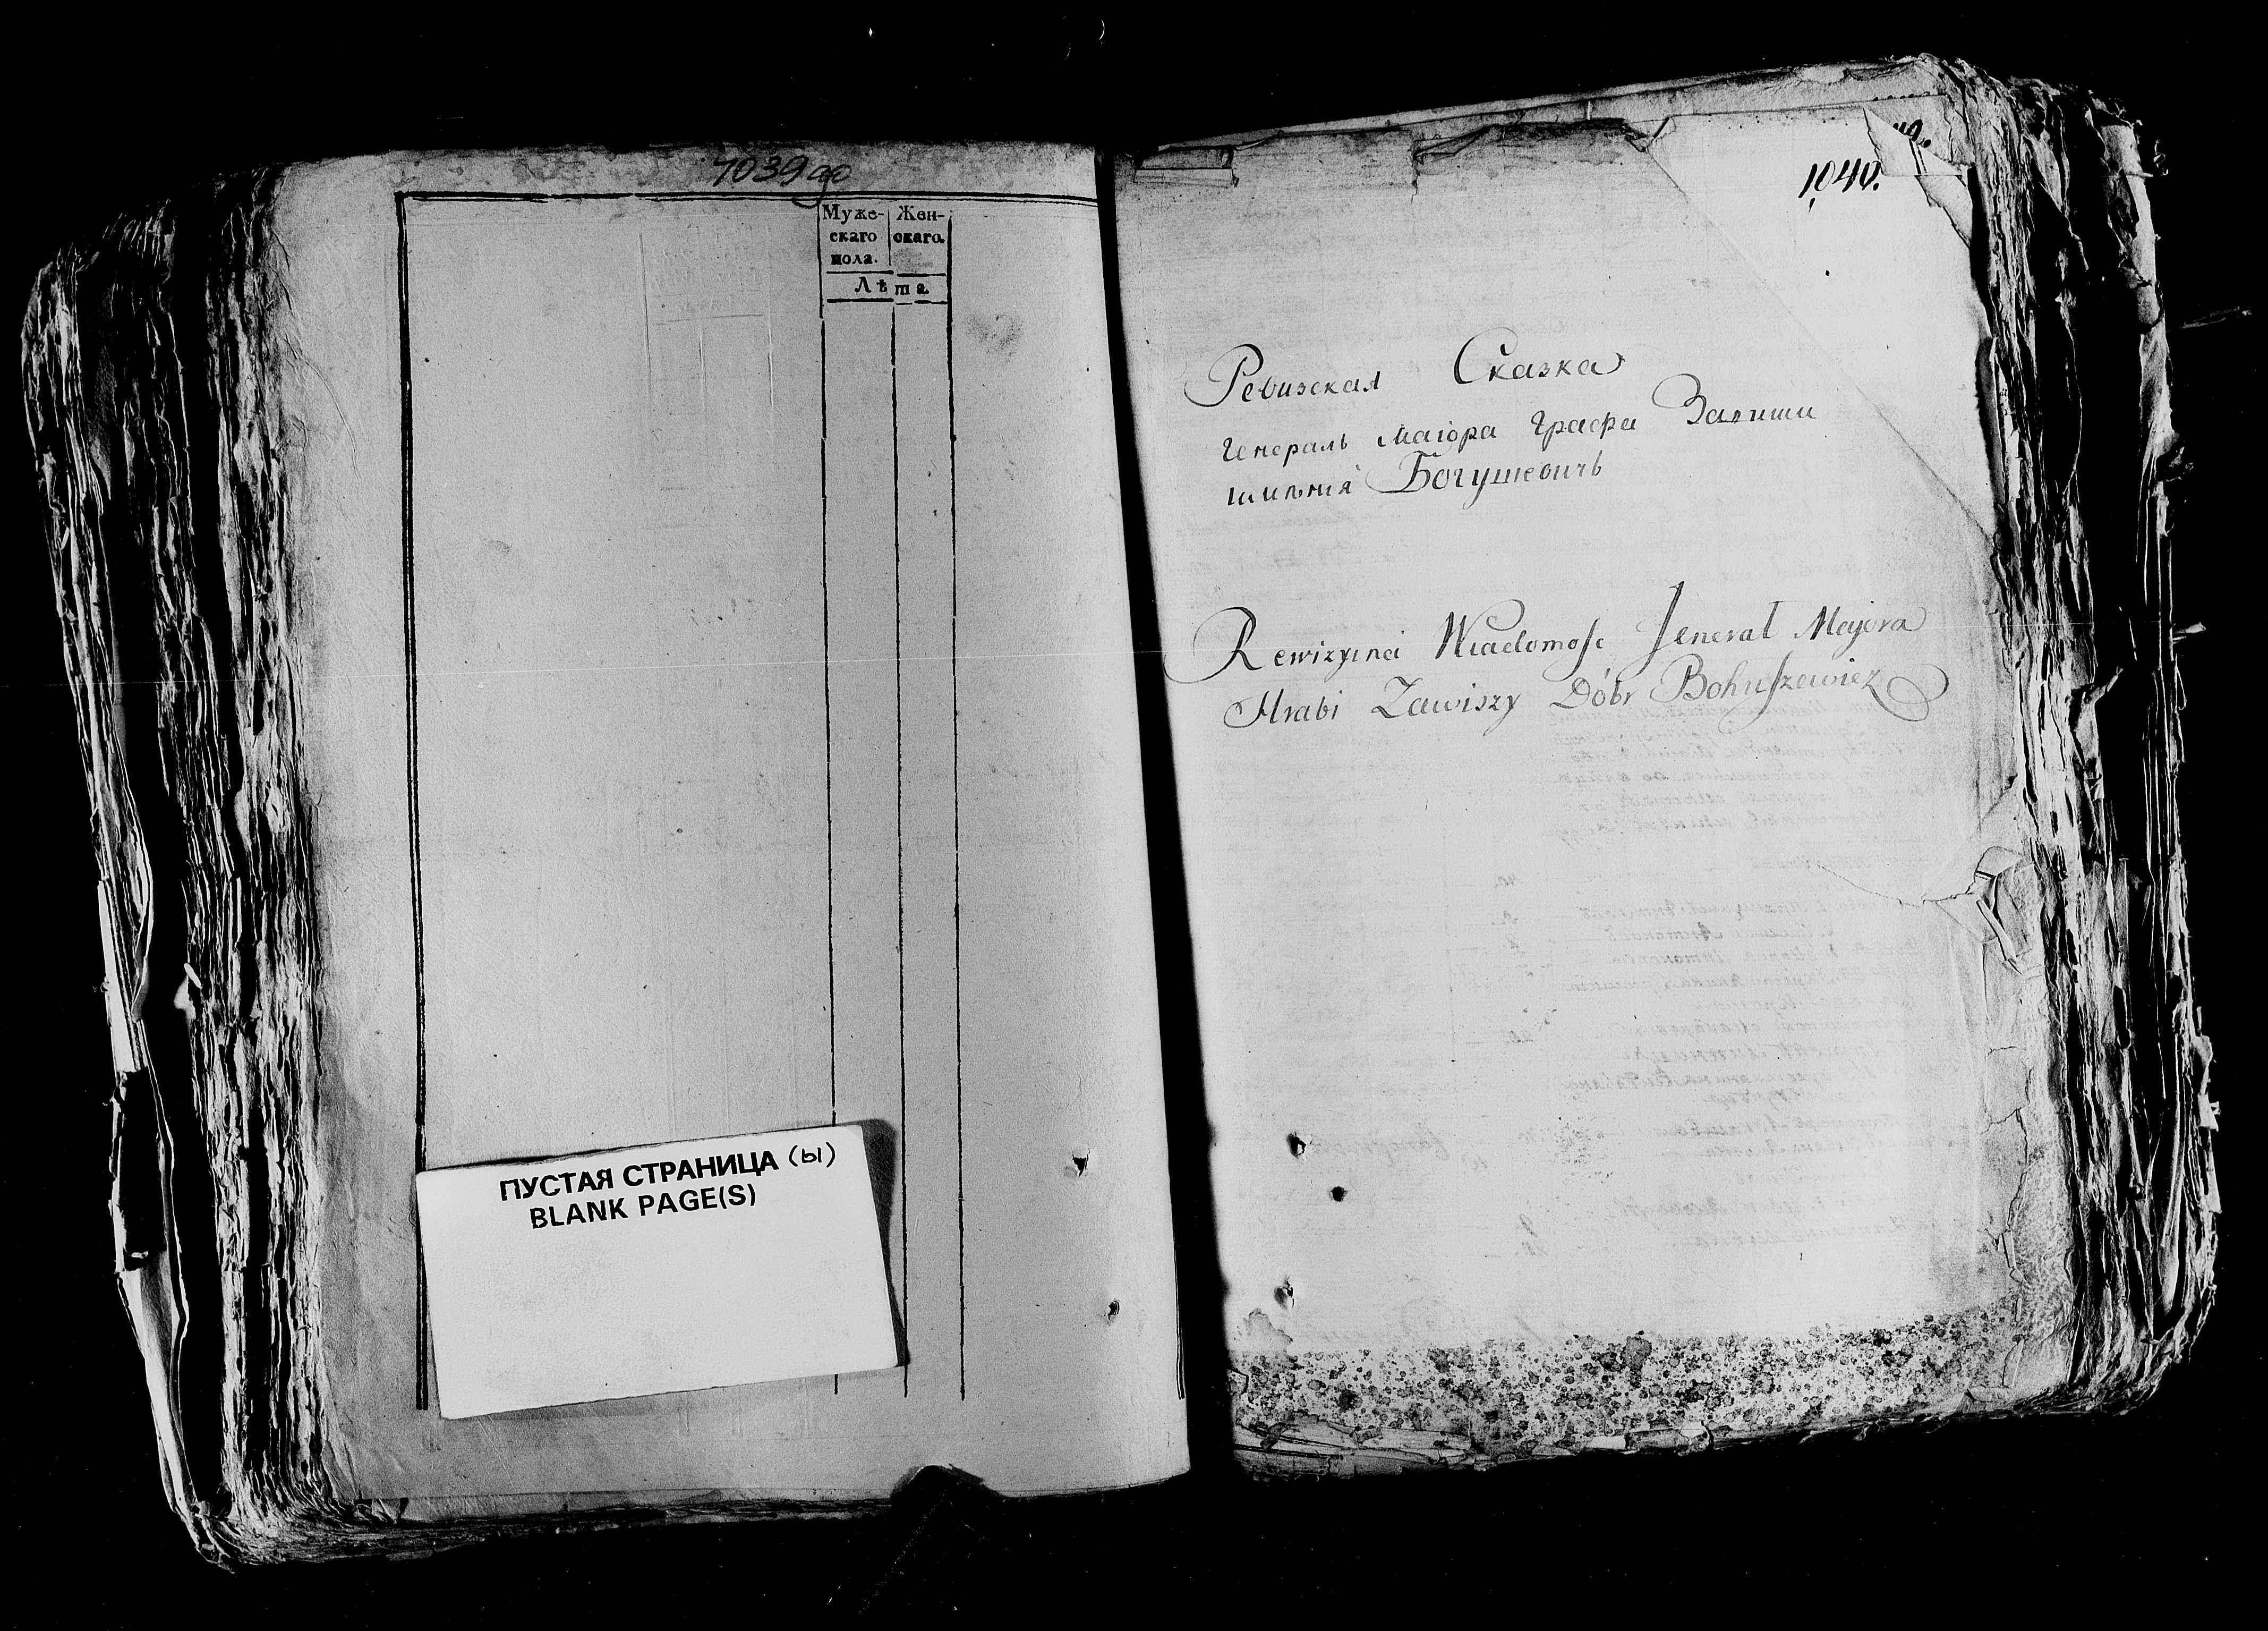 1039 об
Муже- Жен-
скаго скаго.
пола.
Лѣта.
ПУСТАЯ СТРАНИЦА (ы)
BLANK PAGE(S)
1040.
Ревизская Сказка
Генералъ Маіора Графа Завиши
имѣнія Богушевичъ
Rewizyina Wiadomość Jenerał Majora
Hrabi Zawiszy Dóbr Bohuszewicz